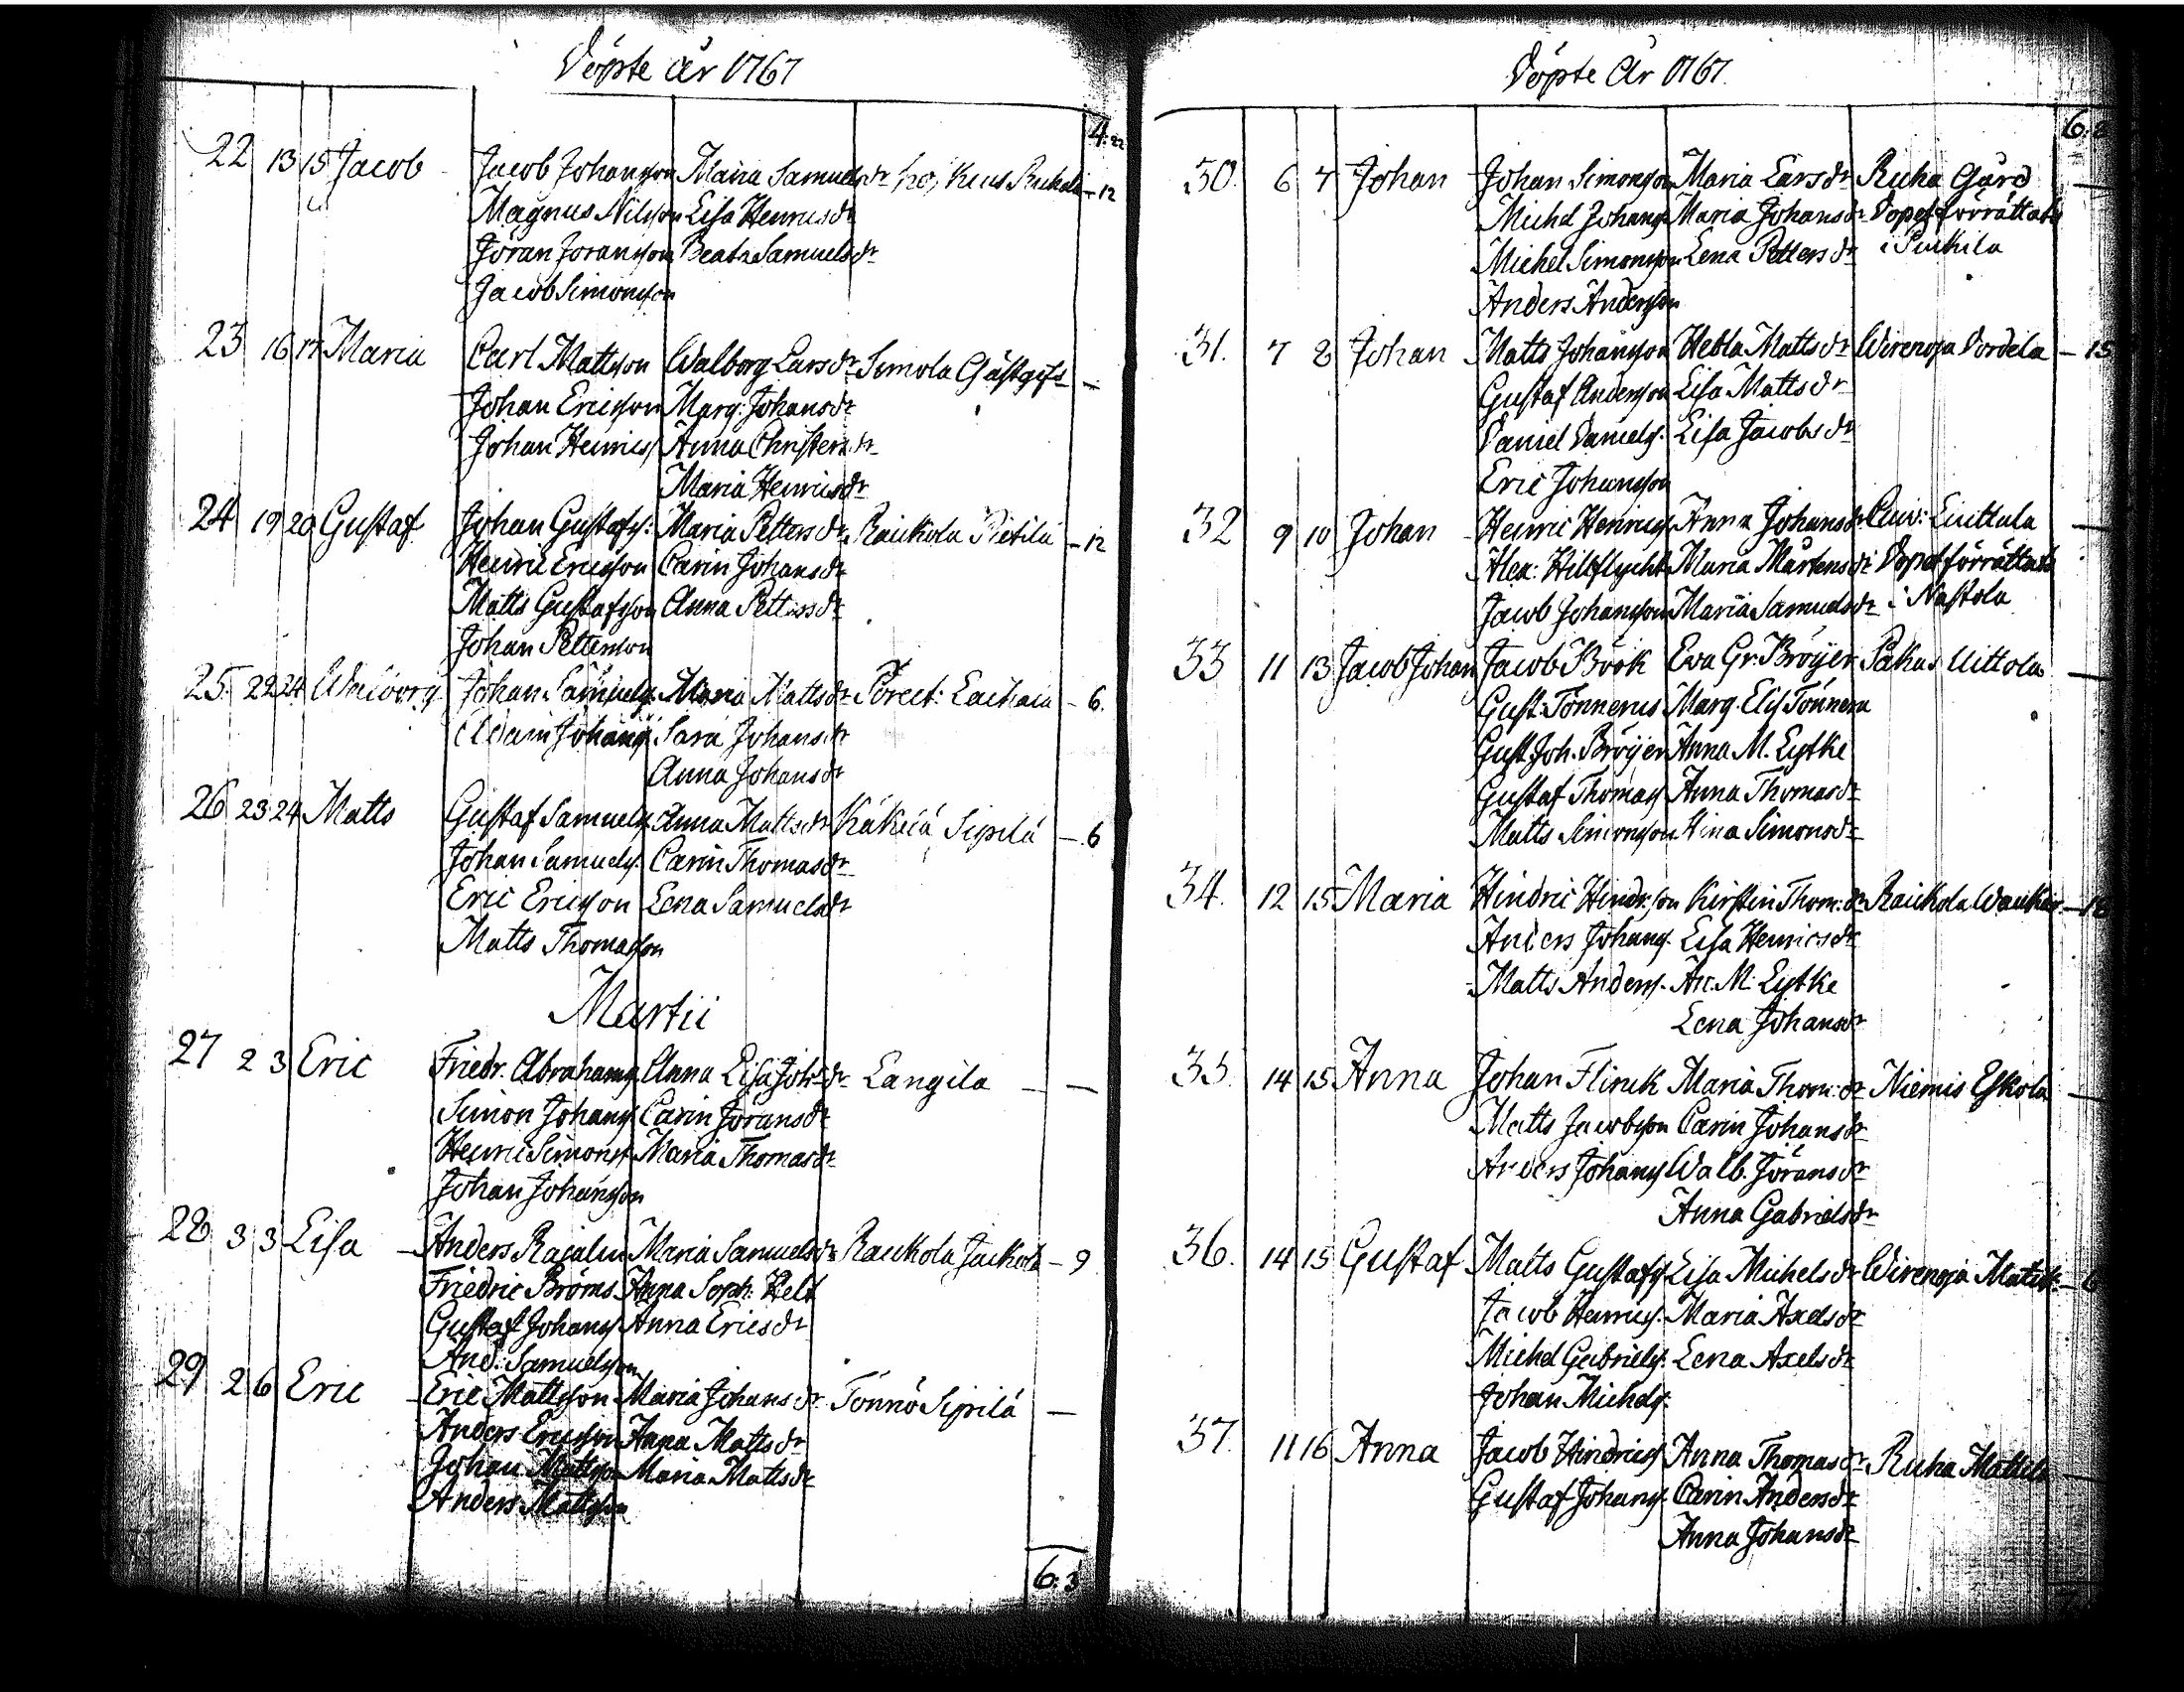 Döpte år 1767
4.22
22 13 15 Jacob Jacob Johansson Maria Samuelsdr -12
Magnus Nilsson Lisa Henricsdr
Jöran Joransson Beata Samuelsdr
Jacob Simonsson
23 16 17 Maria Carl Mattsson Walborg Larsdr Simola Gästgifs -
Johan Ericsson Marg: Johansdr
Johan Henrics Anna Christersdr
Maria Henricsdr
24 19 20 Gustaf Johan Gustafs: Maria Pettersdr Raickola Pietilä -12
Henric Ericsson Carin Johansdr
Matts Gustafsson Anna Pettersdr
Johan Pettersson
25. 22 24 Walborg Johan Samuels. Maria Mattsdr - 6.
Adam Johans Sara Johansdr
Anna Johansdr
26 23 24 Matts Gustaf Samuels. Anna Mattsdr Käkelä Sipilä - 6
Johan Samuels. Carin Thomasdr
Eric Ericsson Lena Samuelsdr
Matts Thomasson
Martii
27 2 3 Eric Friedr. Abrahams. Anna Lisa Joh:dr Langila - -
Simon Johans Carin Joransdr
Henric Simons. Maria Thomasdr
Johan Johansson
28 3 3 Lisa Anders Rajalin Maria Samuelsdr Raickola Jaickola - 9
Friedric Broms Anna Soph: Helt
Gustaf Johans Anna Ericsdr
And: Samuelsson
29 2 6 Eric Eric Mattsson Maria Johansdr Tönnö Sipilä -
Anders Ericsson Anna Mattsdr
Johan Mattsson Maria Mattsdr
Anders Mattsson
6.3
Döpte år 1767.
30. 6 7 Johan Johan Simonsson Maria Larsdr Ruha Gård -
Michel Johans. Maria Johansdr Dopet förrättats
Michel Simonsson Lena Pettersdr i
Anders Andersson
31. 7 8 Johan Matts Johansson Hebla Mattsdr Wirenoja - 15
Gustaf Andersson Lisa Mattsdr
Daniel Daniels. Lisa Jacobsdr
Eric Johansson
32 9 10 Johan Henric Henrics Anna Johansdr -
Alex: Maria Mårtensdr Dopet förrättats
Jacob Johansson Maria Samuelsdr i Nastola
33 11 13 Jacob Johan Jacob Böök Eva Gr. Bröijer Pakas Uittola -
Gust: Tonnerus Marg. Elis Tonnera
Gust Joh. Bröijer Anna M. Lytke
Gustaf Thomas Anna Thomasdr
Matts Simonsson Simonsdr
34. 12 15 Maria Hindric Hindr:son Kirstin Thom:dr Raickola
Anders Johans. Lisa Henricsdr
Matts Anders. An: M: Lytke
Lena Johansdr
35. 14 15 Anna Johan Flinck Maria Thom:dr Niemis Eskola -
Matts Jacobsson Carin Johansdr
Anders Johans Walb. Joransdr
Anna Gabrielsdr
36. 14 15 Gustaf Matts Gustafs Lisa Michelsdr Wirenoja - 6
Jacob Henrics. Maria Axelsdr
Michel Gabriels. Lena Axelsdr
Johan Michels.
37. 11 16 Anna Jacob Hindrics Anna Thomasdr Ruha Mattila -
Gustaf Johans. Carin Andersdr
Anna Johansdr